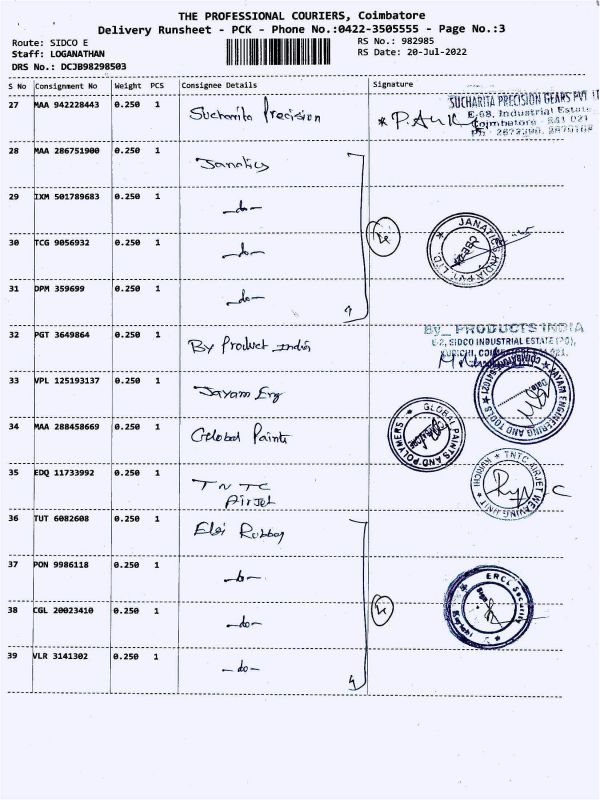 THE PROFESSIONAL COURIERS, Coimbatore
Delivery Runsheet - PCK - Phone No.:0422-3505555 - Page No.:3
Route: SIDCO E
RS No.: 982985
Staff: LOGANATHAN
RS Date: 20-Jul-2022
DRS No.: DCJB98298503
S No Consignment No Weight PCS Consignee Details Signature
27 MAA 942228443 0.250 1 Sucharita Precision
SUCHARITA PRECISION GEARS PVT
E-68, Industrial Estate
Coimbatore - 641 021
28 MAA 286751900 0.250 1 Janatics
29 IXM 501789683 0.250 1 -do-
30 TCG 9056932 0.250 1 -do-
JANATICS INDIA PVT LTD
31 DPM 359699 0.250 1 -do-
32 PGT 3649864 0.250 1 By Product India
By PRODUCTS INDIA
E-2, SIDCO INDUSTRIAL ESTATE (PO),
33 VPL 125193137 0.250 1 Jayam Eng
JAYAM ENGINEERING AND TOOLS
34 MAA 288458669 0.250 1 Global Paints
GLOBAL PAINTS AND POLYMERS
35 EDQ 11733992 0.250 1 TNTC
Airjet
TNTC AIRJET WEAVING UNIT
36 TUT 6082608 0.250 1 Elgi Rubber
37 PON 9986118 0.250 1 -do-
ERCL Security
38 CGL 20023410 0.250 1 -do-
39 VLR 3141302 0.250 1 -do-